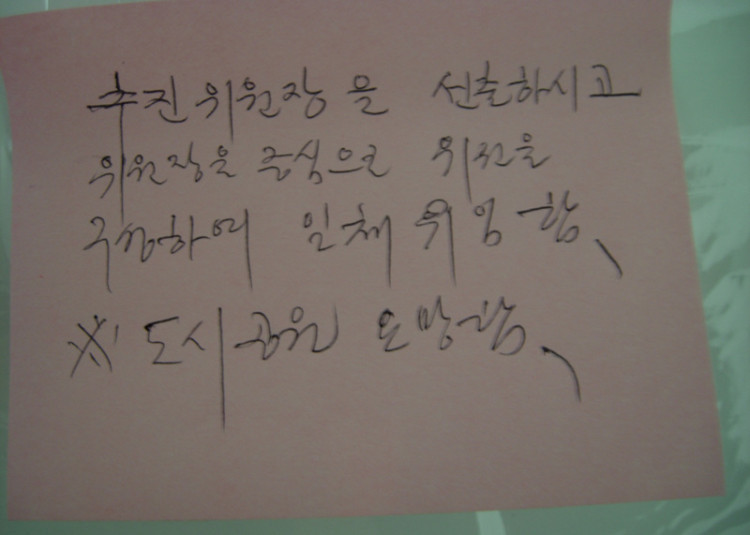 추진위원장을 선출하시고
위원장을 중심으로 위원을
구성하여 일체 위임함、
※ 도시공원 요망함、